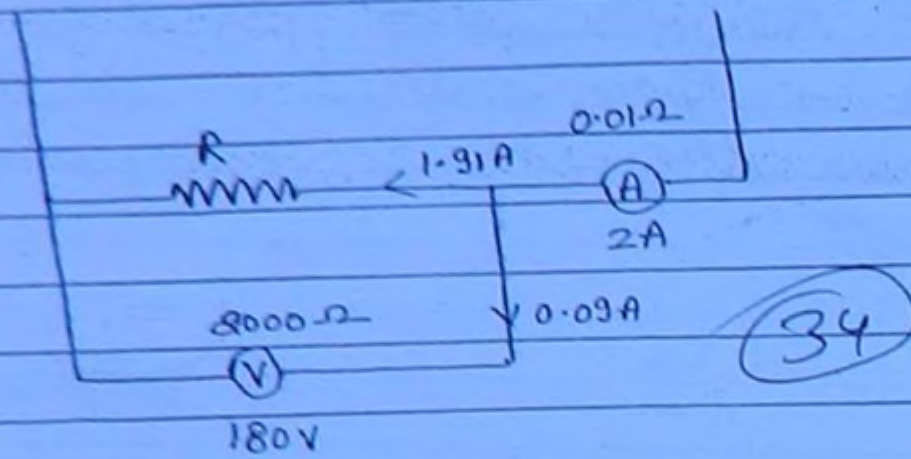 0.01Ω
R
1.91A
A
2A
2000Ω
0.09A
34
V
180V